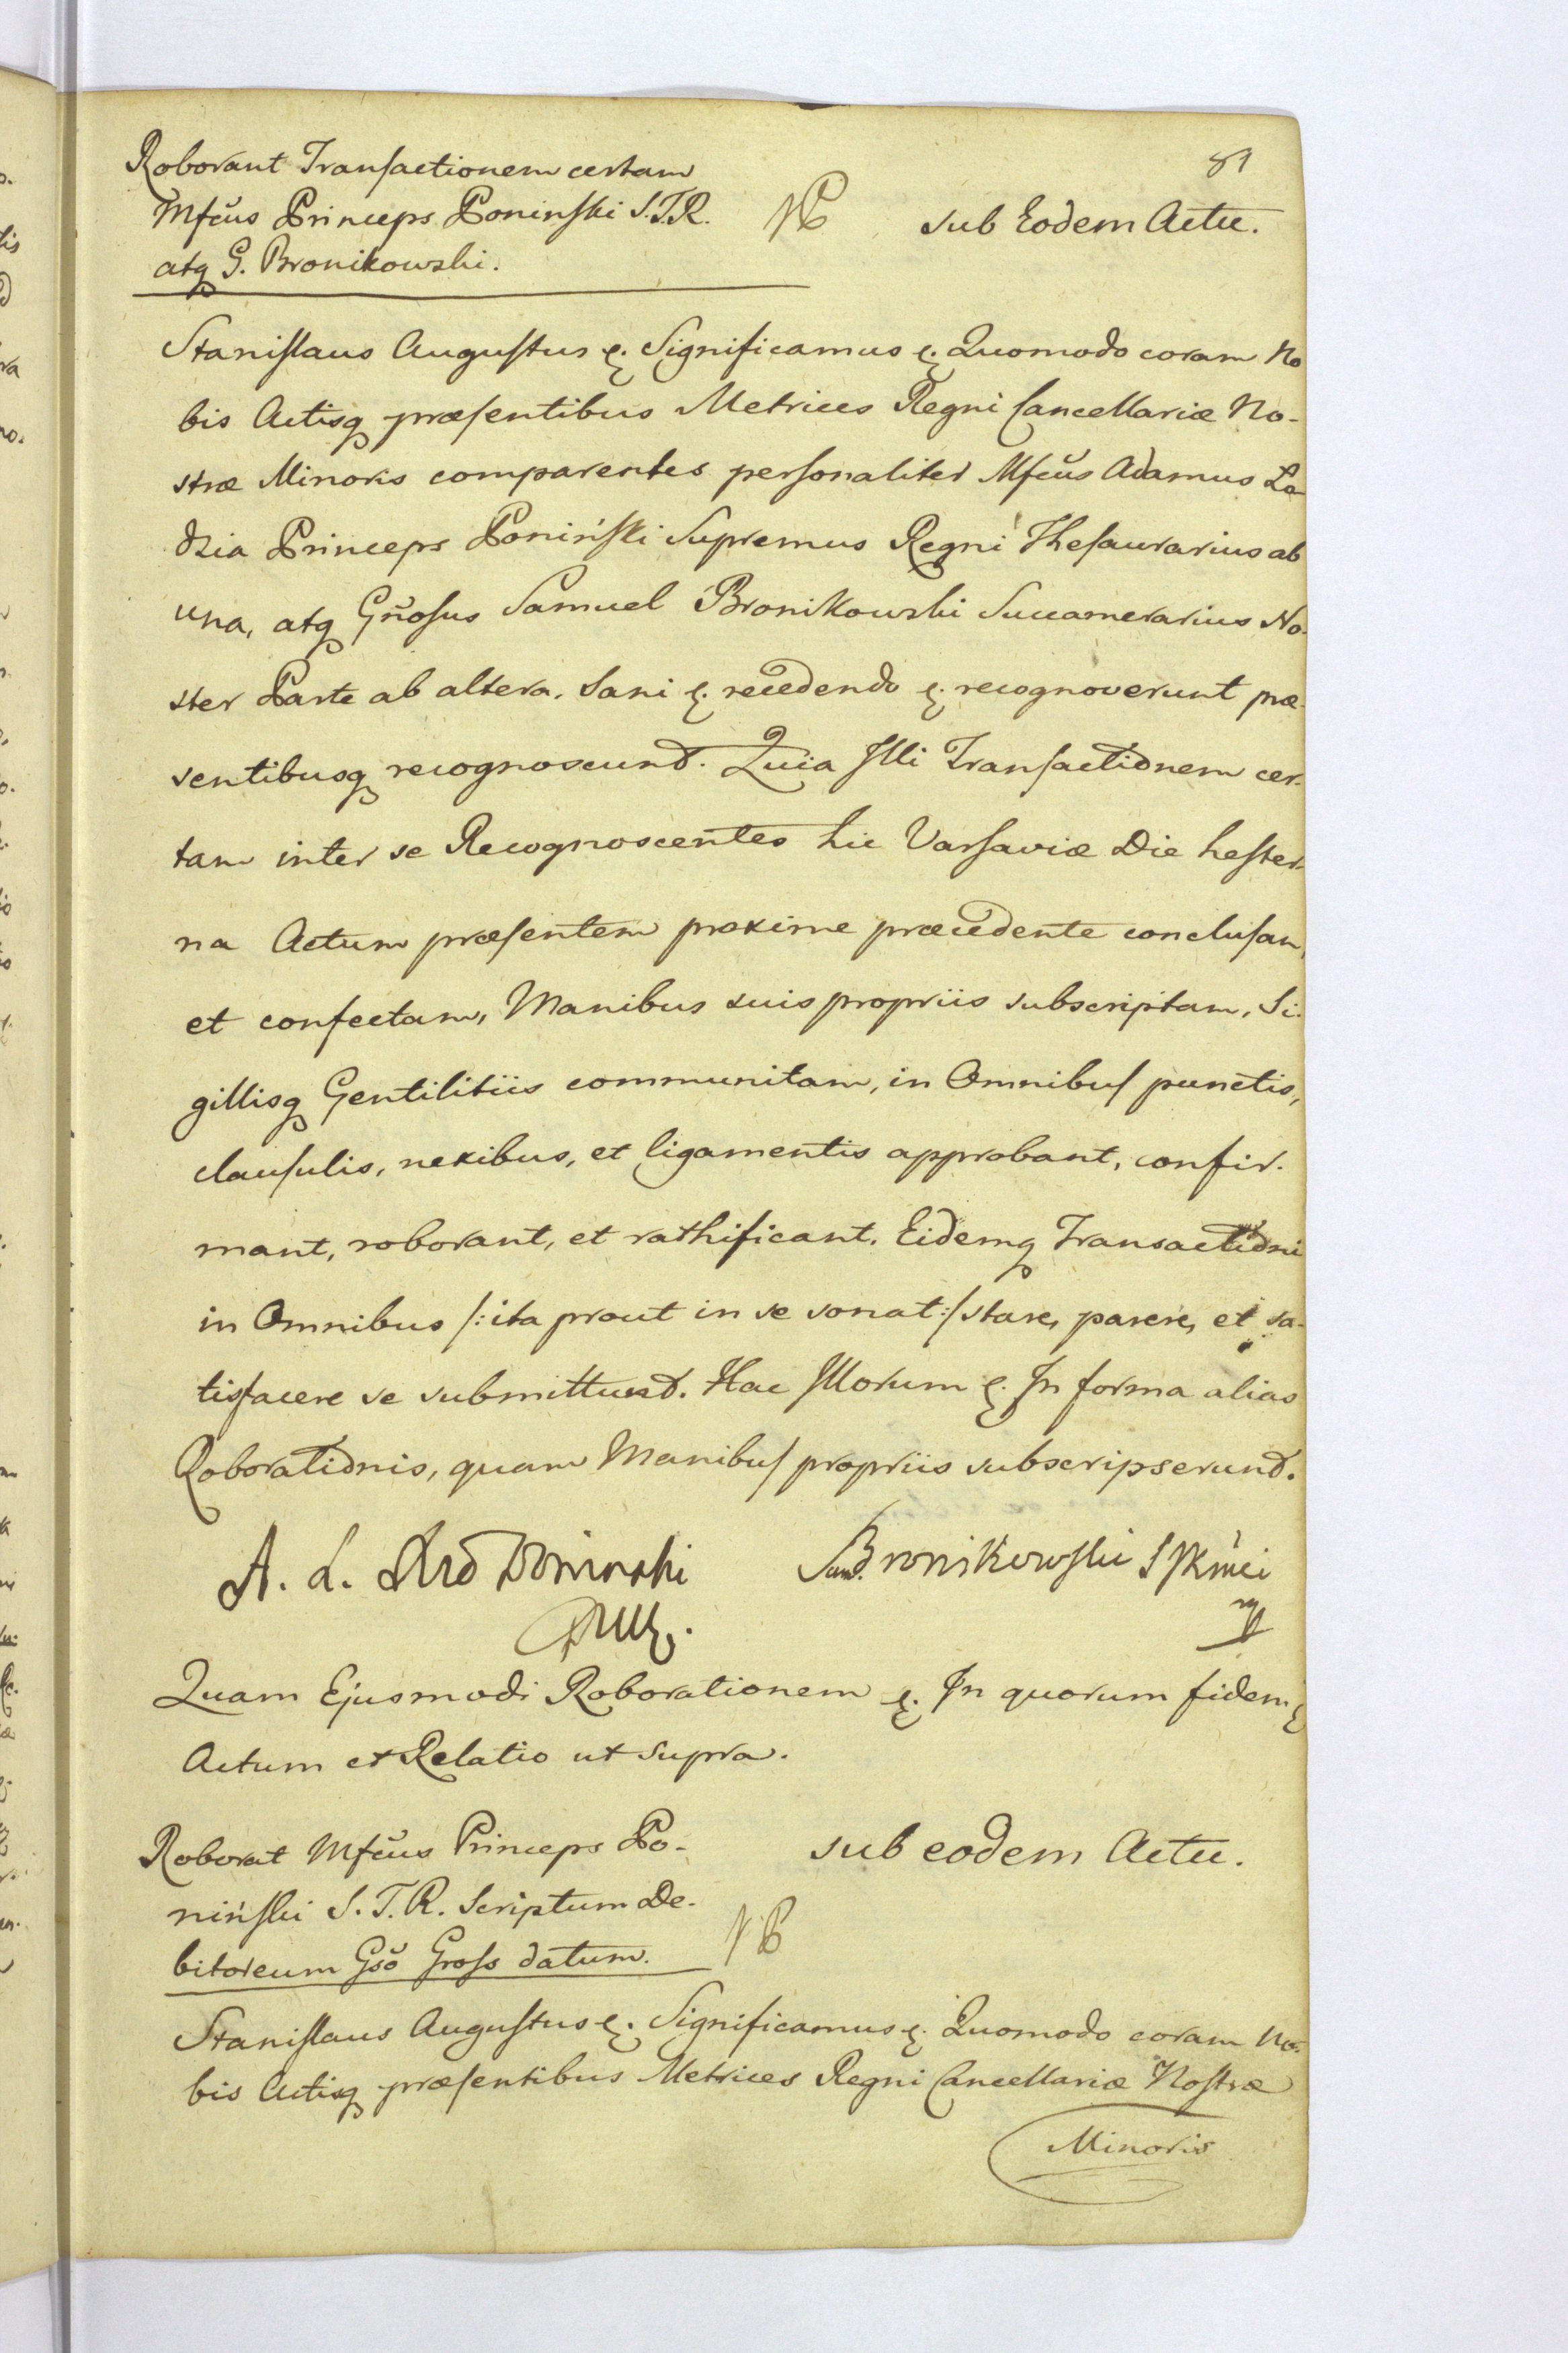 81
Roborant Transactionem certam
Mfcŭs Princeps Poninski S.T.R.
atq G. Bronikowski.
NB
sub Eodem Actu.
Stanislaus Augustus &. Significamus &. Quomodo coram No
bis Actisq præsentibus Metrices Regni Cancellariæ No-
stræ Minoris comparentes personaliter Mfcŭs Adamus Lo
dzia Princeps Poniński Supremus Regni Thesaurarius ab
una, atq Gñosus Samuel Bronikowski Succamerarius No-
ster Parte ab altera. Sani &. recedendo &. recognoverunt præ-
sentibusq recognoscunt. Quia Illi Transactionem cer-
tam inter se Recognoscentes hic Varsaviæ Die hester-
na Actum præsentem proxime præcedente conclusam,
et confectam, Manibus suis propriis subscriptam, Si-
gillisq Gentilitiis communitam, in Omnibus punctis,
clausulis, nexibus, et ligamentis approbant, confir-
mant, roborant, et rathificant. Eidemq Transactioni
in Omnibus /: ita prout in se sonat :/ stare, parere, et sa-
tisfacere se submittunt. Hac Illorum &. In forma alias
Roborationis, quam Manibus propriis subscripserunt.
A. L. Poninski
Sam. Bronikowski
Quam Ejusmodi Roborationem &. In quorum fidem &
Actum et Relatio ut supra.
Roborat Mfcŭs Princeps Po-
niński S.T.R. Scriptum De-
bitoreum Gsŏ Gross datum.
NB
sub eodem Actu.
Stanislaus Augustus &. Significamus &. Quomodo coram No-
bis Actisq præsentibus Metrices Regni Cancellariæ Nostræ
Minoris